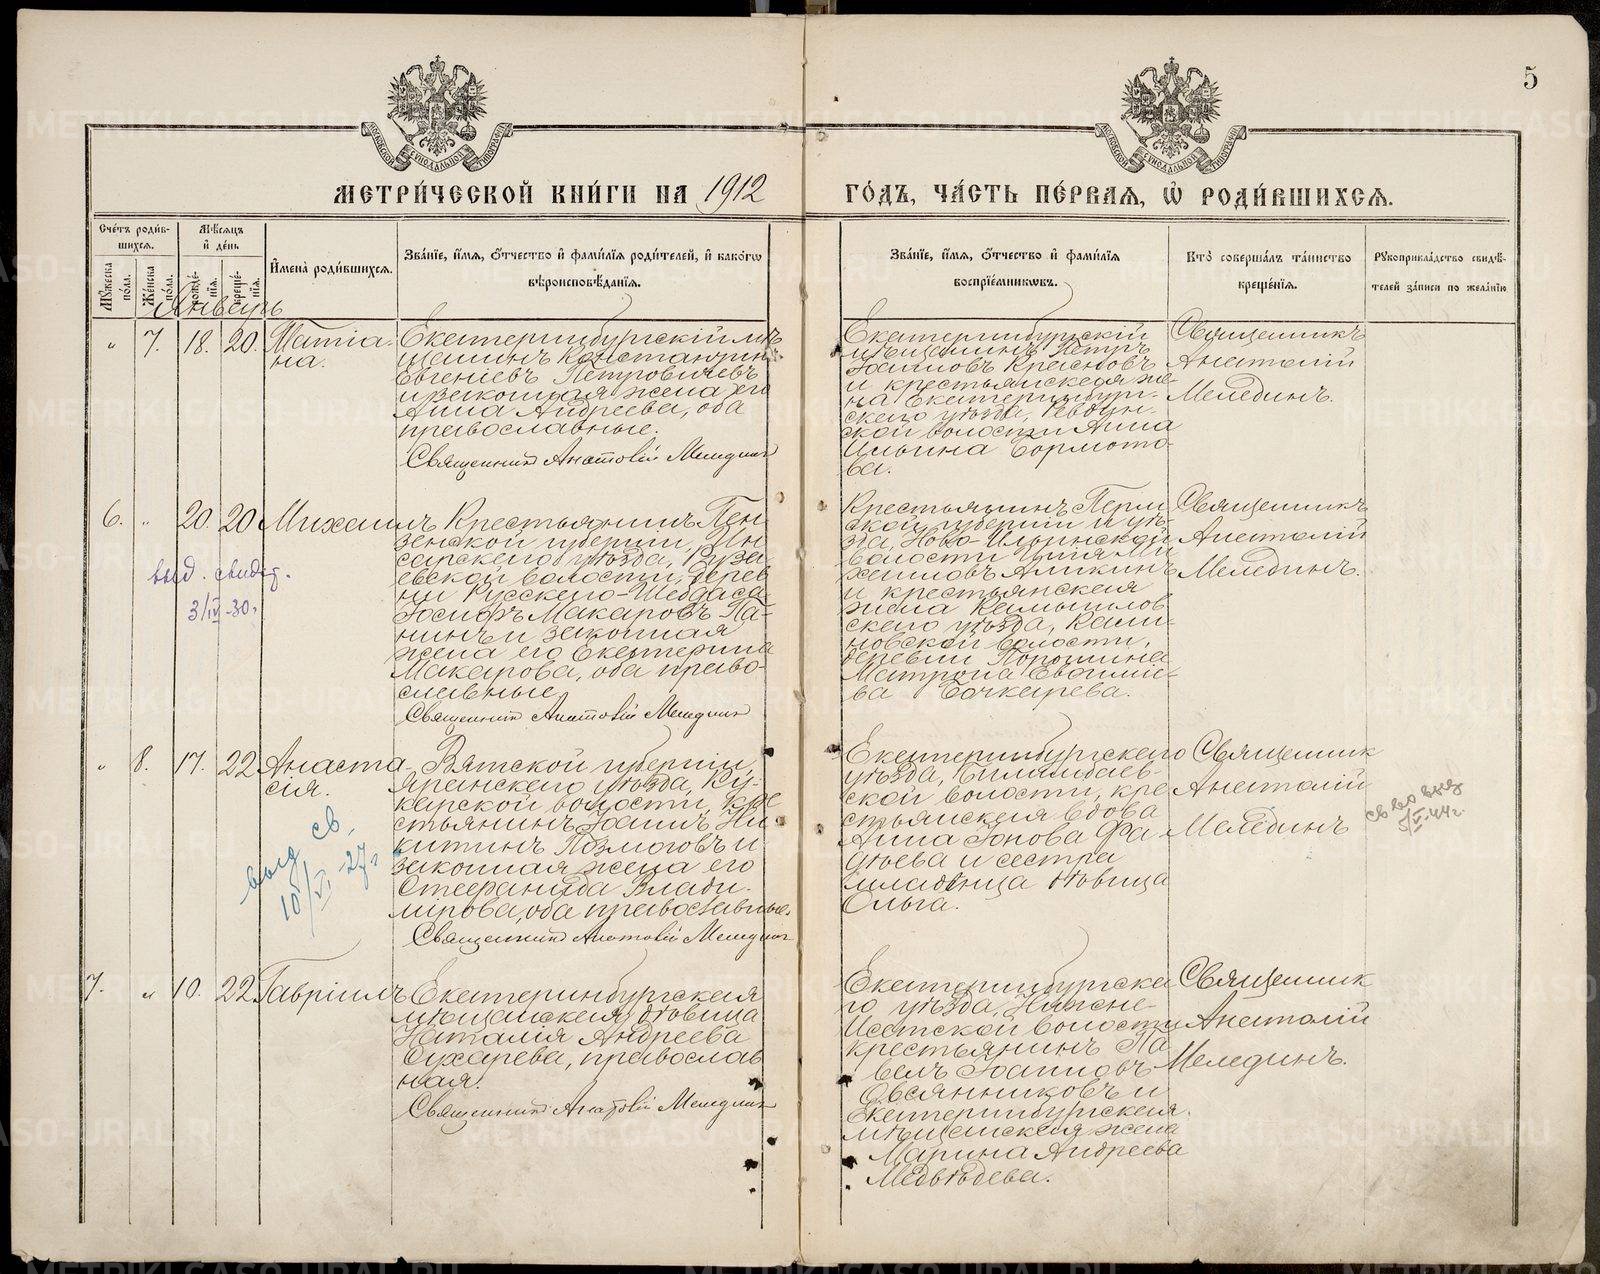 5
МЕТРИ́ЧЕСКОЙ КНИ́ГИ НА 1912
ГО́ДЪ, ЧА́СТЬ ПЕ́РВАѦ, Ѡ҆ РОДИ́ВШИХСѦ.
Сче́тъ роди́в-
шихсѧ.
Мѣ́сѧцъ
и҆ де́нь
И҆мена̀ роди́вшихсѧ.
Зва́нїе, и҆́мѧ, ѻ҆́тчество и҆ фами́лїѧ роди́телей, и҆ како́гѡ
вѣроисповѣ́данїѧ.
Зва́нїе, и҆́мѧ, ѻ҆́тчество и҆ фами́лїѧ
воспрїе́мникѡвъ.
Кто̀ соверша́лъ та́инство
креще́нїѧ.
Рꙋкоприкла́дство свидѣ́-
телей за́писи по жела́нїю
Мꙋ́жеска
по́ла.
Же́нска
по́ла.
рожде́-
нїѧ.
креще́-
нїѧ.
Январь
" 7. 18. 20. Татіа-
на.
Екатеринбургскій мѣ
щанинъ Константинъ
Евгеніевъ Петровичевъ
и законная жена его
Анна Андреева, оба
православные.
Священникъ Анатолій Мелединъ
Екатеринбургскій
мѣщанинъ Петръ
Іоанновъ Красновъ
и крестьянская же-
на Екатеринбург-
скаго уѣзда, Ревдин-
ской волости Анна
Ильина Бормото-
ва.
Священникъ
Анатолій
Мелединъ.
6. " 20. 20 Михаилъ
Крестьянинъ Пен
зенской губерніи, Ин
сарскаго уѣзда, Руза
евской волости, дерев
ни Русскаго-Шебдаса
Іосифъ Макаровъ Па-
нинъ и законная
жена его Екатерина
Макарова, оба право-
славные
Священникъ Анатолій Мелединъ
выд. свидѣт.
3/IV-30г
Крестьянинъ Перм
ской губерніи и уѣ-
зда, Ново-Ильинской
волости Илія Ми
хаиловъ Аликинъ
и крестьянская
жена Камышлов
скаго уѣзда, Кали-
новской волости,
деревни Порошина
Матрона Евфиміе-
ва Бочкарева.
Священникъ
Анатолій
Мелединъ.
" 8. 17. 22 Анаста-
сія.
Вятской губерніи,
Яранскаго уѣзда, Ку-
карской волости, кре
стьянинъ Іоаннъ Ни
китинъ Позмоговъ и
законная жена его
Стефанида Влади-
мірова, оба православные.
Священникъ Анатолій Мелединъ
выд св.
10/VI-27г
Екатеринбургскаго
уѣзда, Билимбаев-
ской волости, кре
стьянская вдова
Анна Іонова Фа-
дѣева и сестра
младенца дѣвица
Ольга.
Священник
Анатолій
Мелединъ
7. " 10. 22. Гавріилъ
Екатеринбургская
мѣщанская дѣвица
Наталія Андреева
Сухарева, православ
ная.
Священникъ Анатолій Мелединъ
Екатеринбургска
го уѣзда, Нижне-
Исетской волости
крестьянинъ Па
велъ Іоанновъ
Овсянниковъ и
Екатеринбургская
мѣщанская жена
Марина Андреева
Медвѣдева.
Священник
Анатолій
Мелединъ.